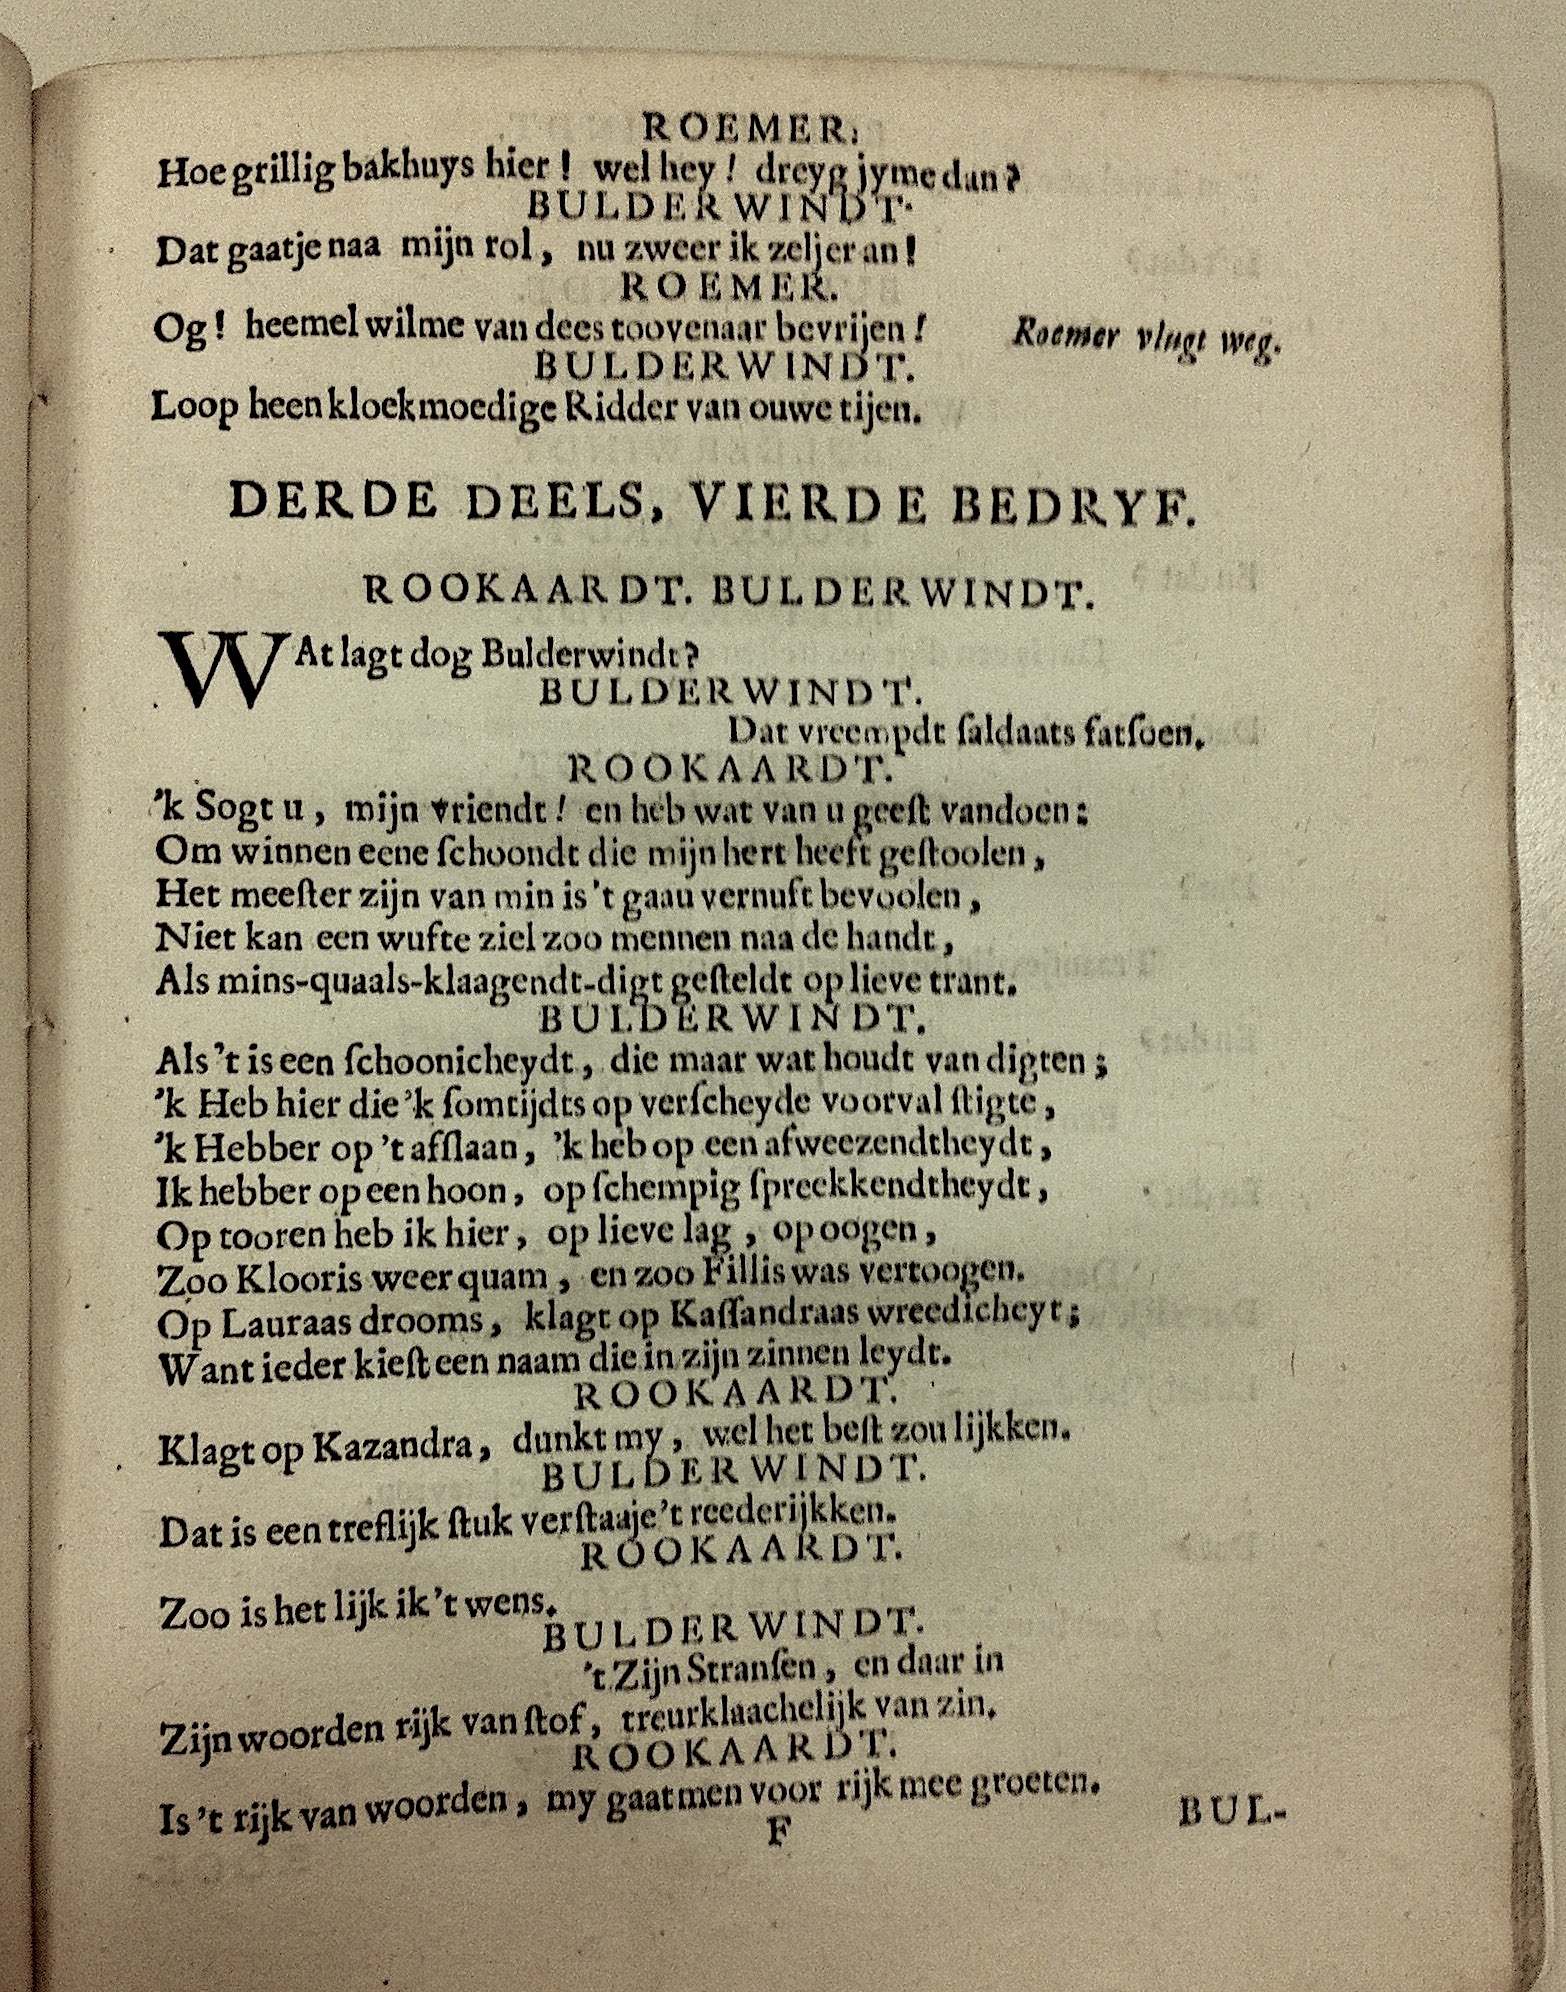 ROEMER.
Hoe grillig bakhuys hier! wel hey! dreyg jyme dan?
BULDERWINDT.
Dat gaatje naa mijn rol, nu zweer ik zeljer an!
ROEMER.
Og! heemel wilme van dees toovenaar bevrijen! Roemer vlugt weg.
BULDERWINDT.
Loop heen kloekmoedige Ridder van ouwe tijen.
DERDE DEELS, VIERDE BEDRYF.
ROOKAARDT. BULDERWINDT.
WAt lagt dog Bulderwindt?
BULDERWINDT.
Dat vreempdt ſaldaats fatſoen.
ROOKAARDT.
'k Sogt u, mijn vriendt! en heb wat van u geeſt vandoen:
Om winnen eene ſchoondt die mijn hert heeft geſtoolen,
Het meeſter zijn van min is 't gaau vernuft bevoolen,
Niet kan een wufte ziel zoo mennen naa de handt,
Als mins-quaals-klaagendt-digt geſteldt op lieve trant.
BULDERWINDT.
Als 't is een ſchoonicheydt, die maar wat houdt van digten;
'k Heb hier die 'k ſomtijdts op verſcheyde voorval ſtigte,
'k Hebber op 't afſlaan, 'k heb op een afweezendtheydt,
Ik hebber op een hoon, op ſchempig ſpreekkendtheydt,
Op tooren heb ik hier, op lieve lag, op oogen,
Zoo Klooris weer quam, en zoo Fillis was vertoogen.
Op Lauraas drooms, klagt op Kaſſandraas wreedicheyt;
Want ieder kieſt een naam die in zijn zinnen leydt.
ROOKAARDT.
Klagt op Kazandra, dunkt my, wel het beſt zou lijkken.
BULDERWINDT.
Dat is een treflijk ſtuk verſtaaje 't reederijkken.
ROOKAARDT.
Zoo is het lijk ik 't wens.
BULDERWINDT.
't Zijn Stranſen, en daar in
Zijn woorden rijk van ſtof, treurklaachelijk van zin.
ROOKAARDT.
Is 't rijk van woorden, my gaat men voor rijk mee groeten.
F BUL-